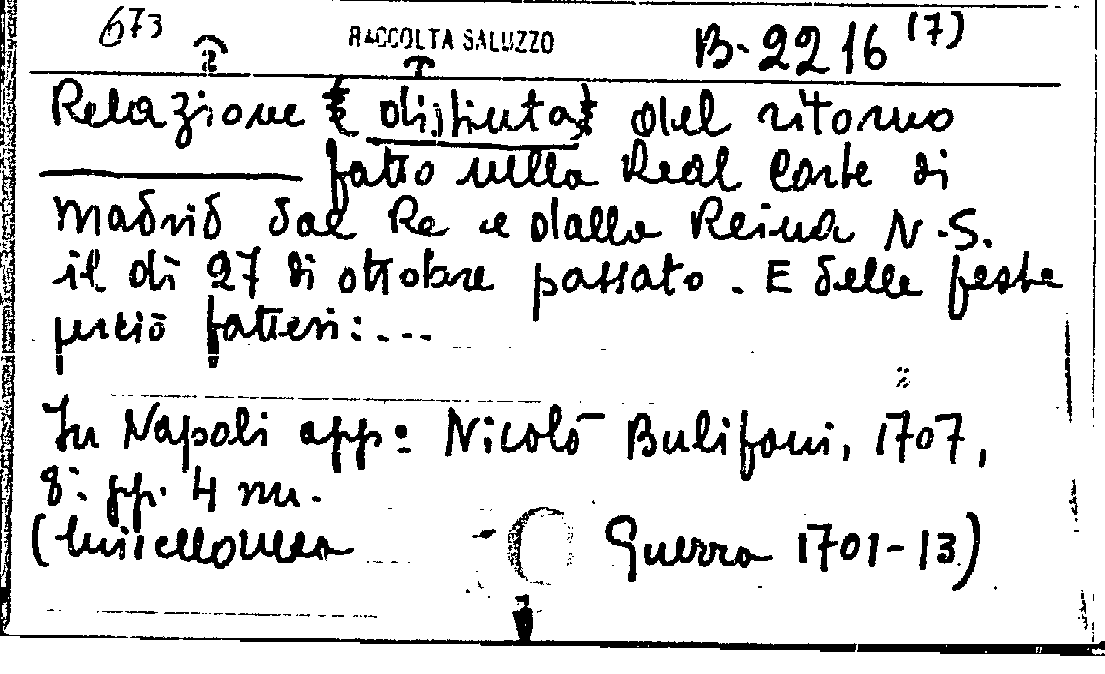 673 RACCOLTA SALUZZO B-2216 (7)
Relazione distinta del ritorno
fatto nella Real Corte di
Madrid dal Re e dalla Reina N.S.
il dì 27 di ottobre passato. E delle feste
perciò fattesi:...
In Napoli app: Nicolò Bulifoni, 1707,
8: pp. 4 nn.
(Miscellanea Guerra 1701-13)